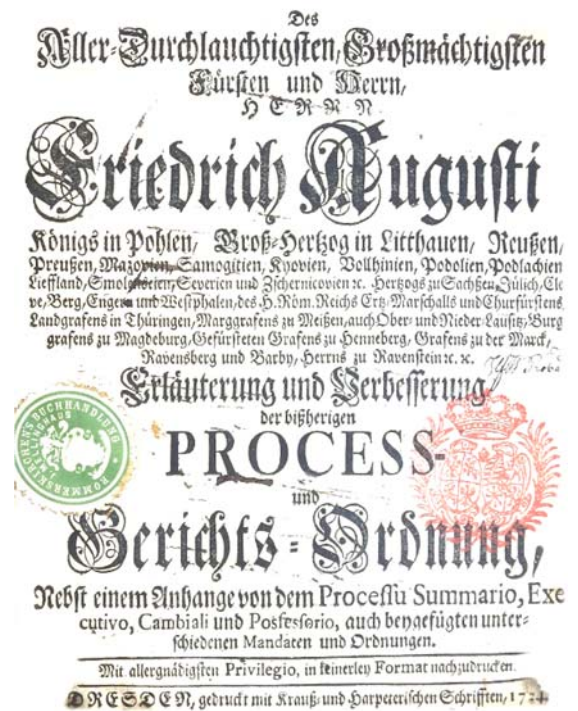 Des
Aller-Durchlauchtigsten, Großmächtigsten
Fürsten und Herrn,
HERRN
Friedrich Augusti
Königs in Pohlen, Groß-Hertzog in Litthauen, Reußen,
Preußen, Mazovien, Samogitien, Kyovien, Vollhinien, Podolien, Podlachien
Lieffland, Smolenscien, Severien und Zschernicovien ꝛc. Hertzogs zu Sachßen, Jülich, Cle
ve, Berg, Engern und Westphalen, des H. Röm. Reichs Ertz-Marschalls und Churfürstens
Landgrafens in Thüringen, Marggrafens zu Meißen, auch Ober- und Nieder-Lausitz, Burg
grafens zu Magdeburg, Gefürsteten Grafens zu Henneberg, Grafens zu der Marck,
Ravensberg und Barby, Herrns zu Ravenstein ꝛc. ꝛc.
Erläuterung und Verbesserung
der bißherigen
PROCESS-
und
Gerichts-Ordnung,
Nebst einem Anhange von dem Processu Summario, Exe
cutivo, Cambiali und Possessorio, auch beygefügten unter-
schiedenen Mandaten und Ordnungen.
Mit allergnädigsten Privilegio, in keinerley Format nachzudrucken.
DRESDEN, gedruckt mit Krauß- und Harpeterischen Schrifften, 1724.
ROMMERSKIRCHEN'S BUCHHANDLUNG
MELLINGHAUS